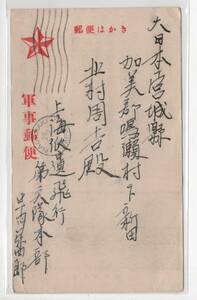 郵便はかき
軍事郵便
大日本宮城縣
加美郡鳴瀬村下新田
北村周吉殿
上海派遣飛行
第六隊本部